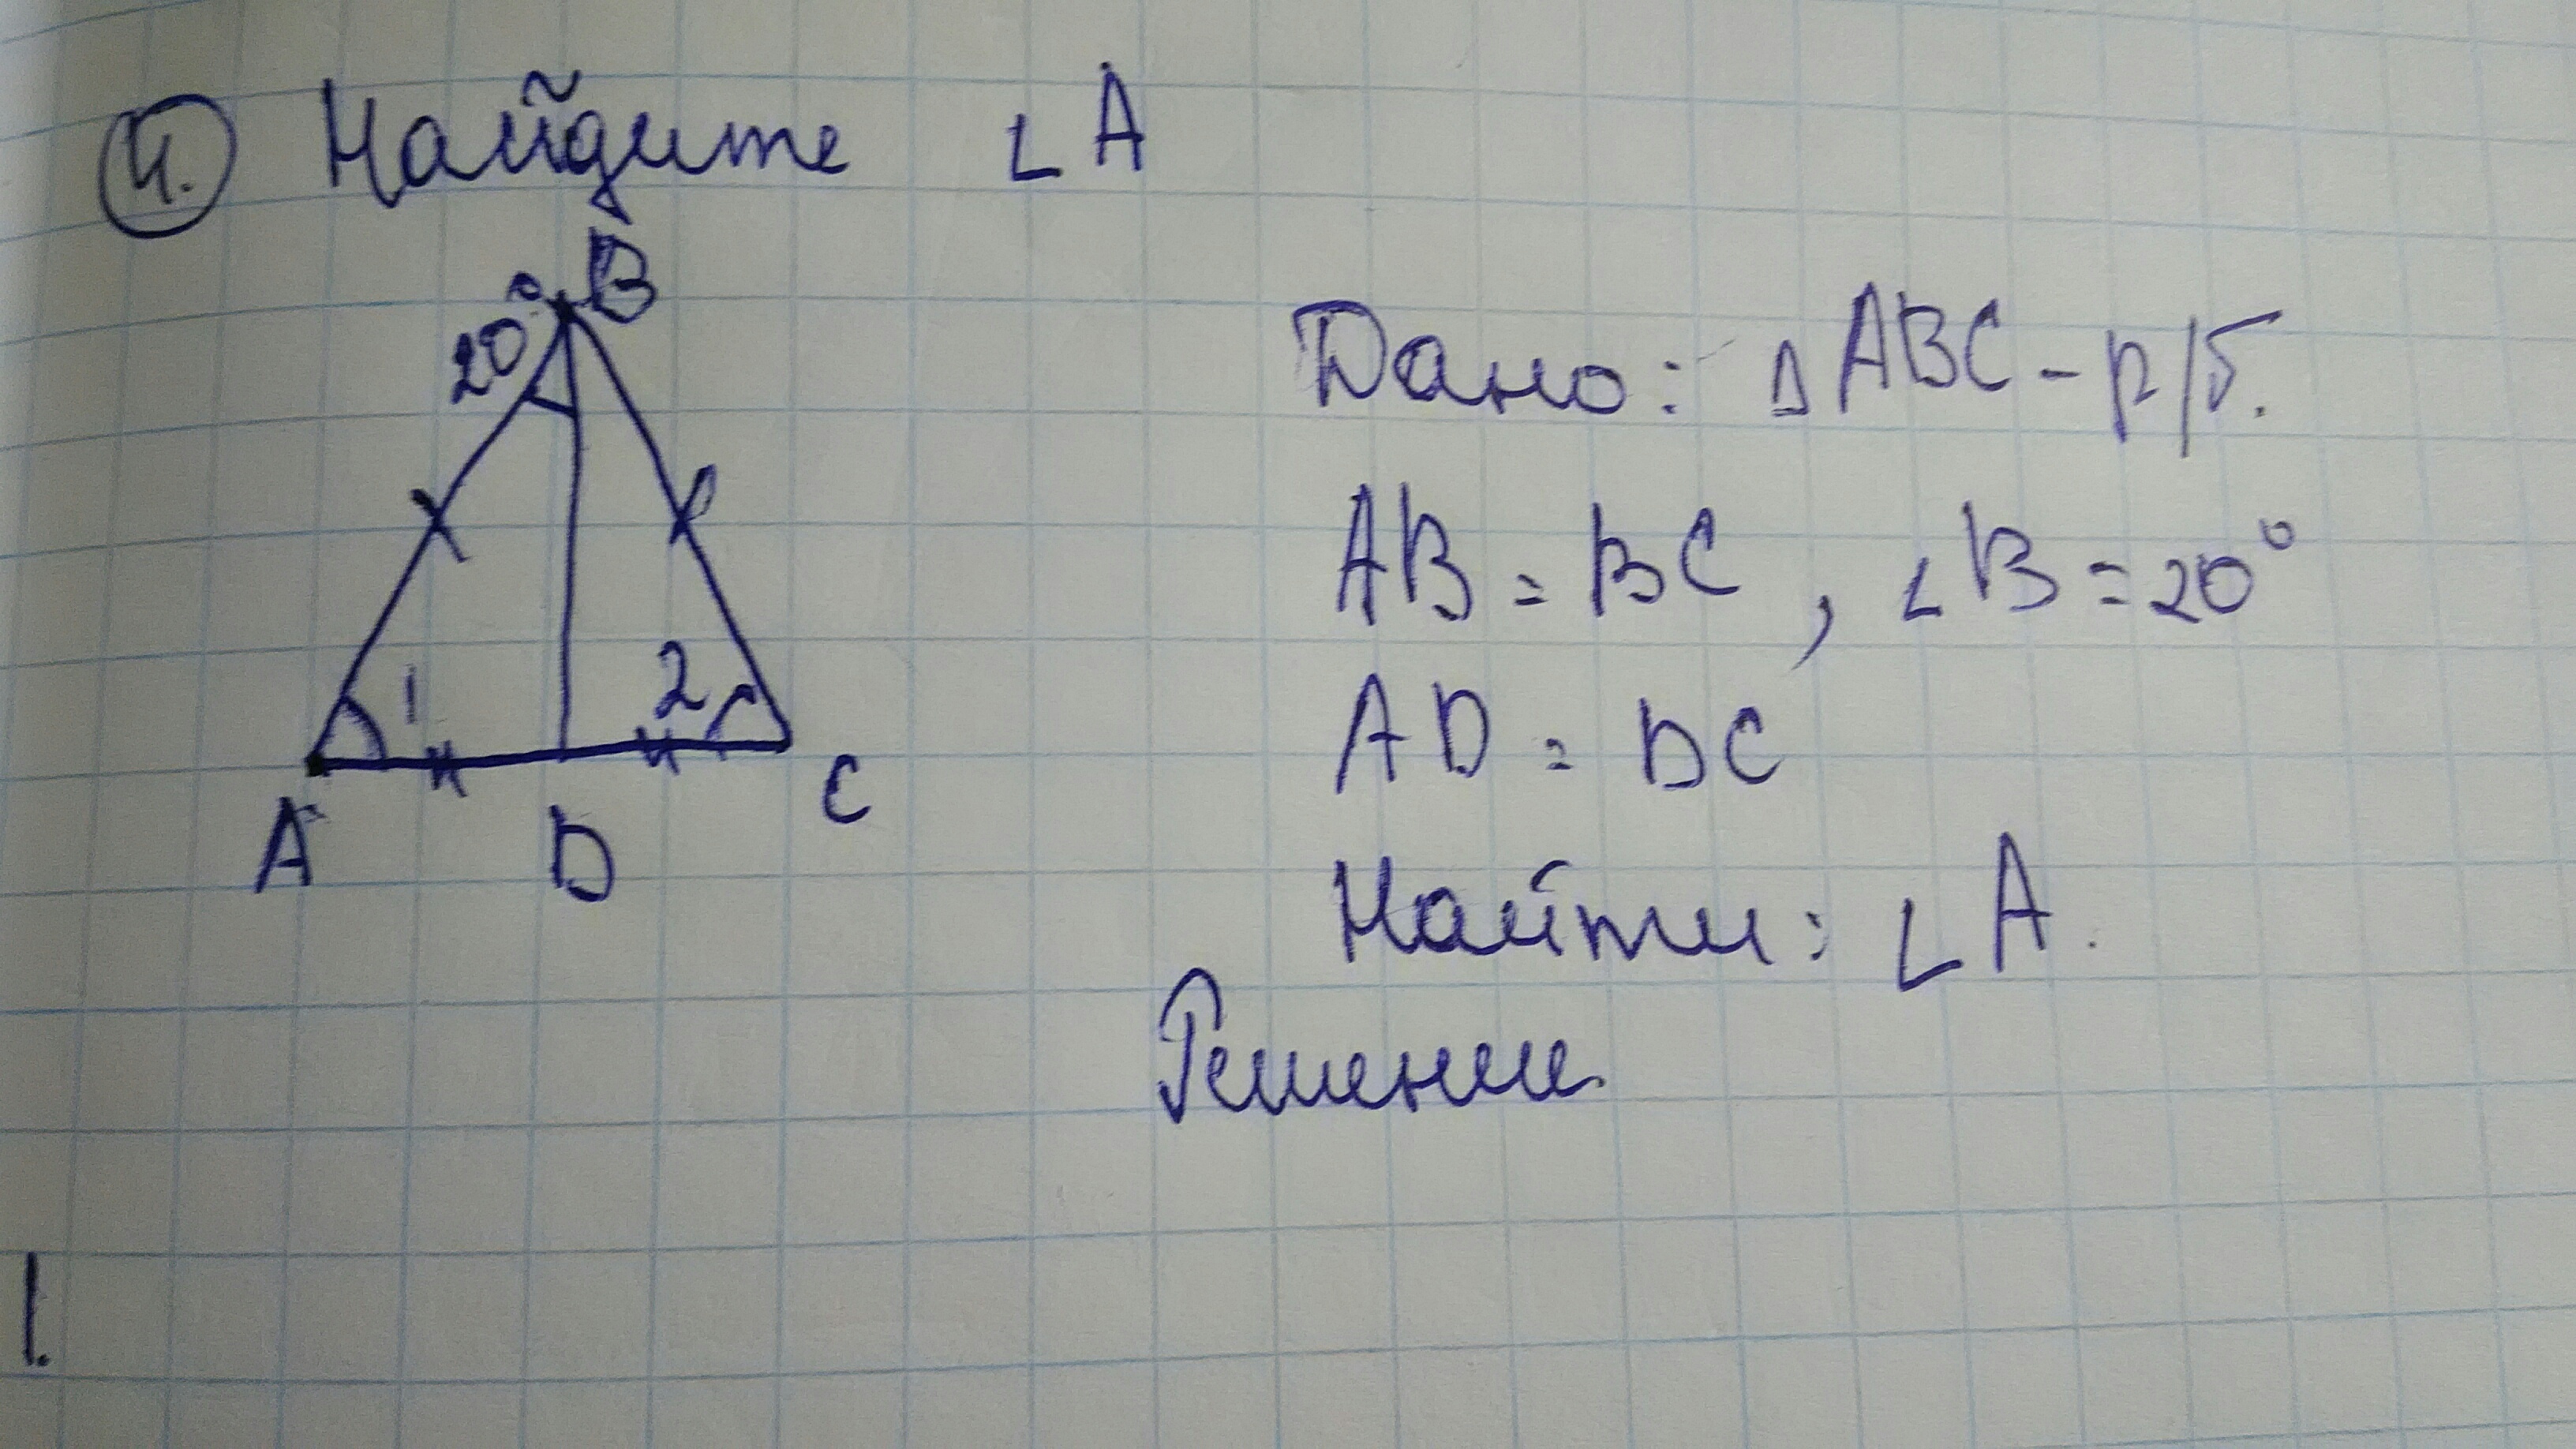 4. Найдите ∠A
20° B
1 2
A D C
Дано: △ABC - р/б.
AB = BC, ∠B = 20°
AD = DC
Найти: ∠A.
Решение
1.